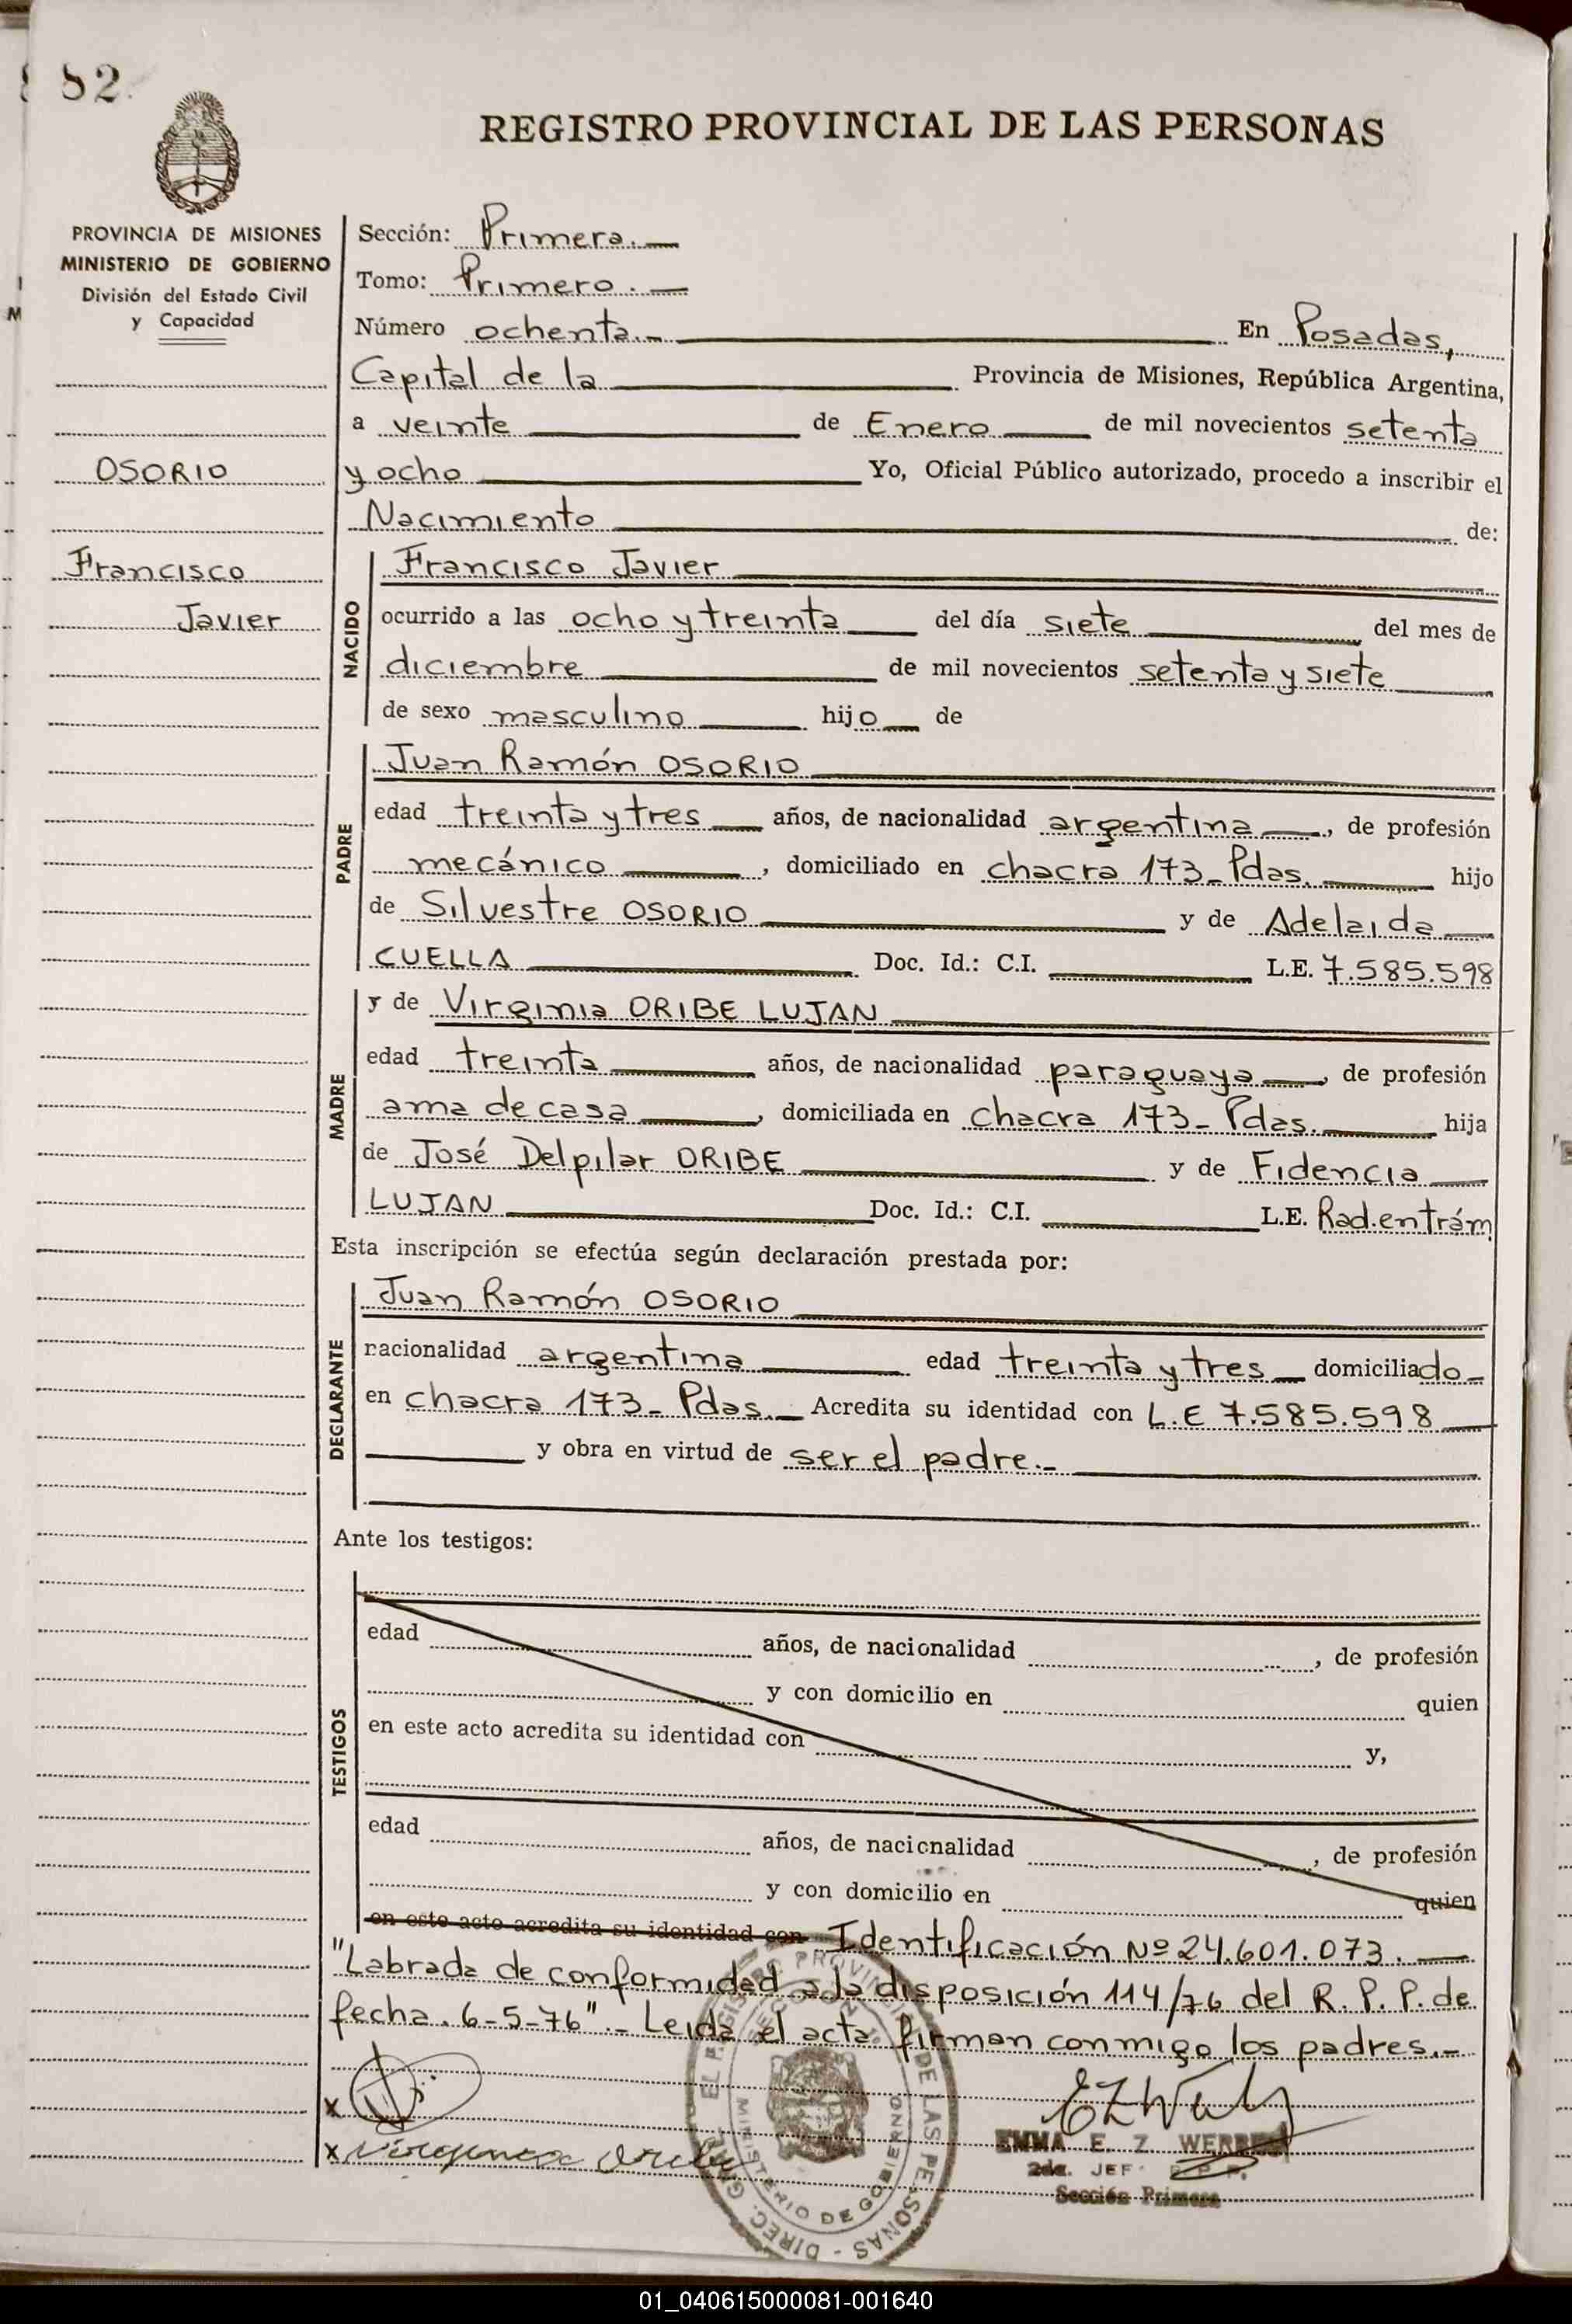 82.
REGISTRO PROVINCIAL DE LAS PERSONAS
PROVINCIA DE MISIONES
MINISTERIO DE GOBIERNO
División del Estado Civil
y Capacidad
OSORIO
Francisco
Javier
Sección: Primera.
Tomo: Primero.
Número ochenta.- En Posadas,
Capital de la Provincia de Misiones, República Argentina,
a veinte de Enero de mil novecientos setenta
y ocho Yo, Oficial Público autorizado, procedo a inscribir el
Nacimiento de:
NACIDO
Francisco Javier
ocurrido a las ocho y treinta del día siete del mes de
diciembre de mil novecientos setenta y siete
de sexo masculino hijo de
PADRE
Juan Ramón OSORIO
edad treinta y tres años, de nacionalidad argentina, de profesión
mecánico, domiciliado en chacra 173- Pdas. hijo
de Silvestre OSORIO y de Adelaida
CUELLA Doc. Id.: C.I. L.E. 7.585.598
MADRE
y de Virginia ORIBE LUJAN
edad treinta años, de nacionalidad paraguaya, de profesión
ama de casa, domiciliada en chacra 173- Pdas. hija
de José Delpilar ORIBE y de Fidencia
LUJAN Doc. Id.: C.I. L.E. Rad.entrám
Esta inscripción se efectúa según declaración prestada por:
DECLARANTE
Juan Ramón OSORIO
nacionalidad argentina edad treinta y tres domiciliado
en chacra 173- Pdas.- Acredita su identidad con L.E 7.585.598
y obra en virtud de ser el padre.-
Ante los testigos:
TESTIGOS
edad años, de nacionalidad , de profesión
y con domicilio en quien
en este acto acredita su identidad con y,
edad años, de nacionalidad , de profesión
y con domicilio en quien
en este acto acredita su identidad con Identificación Nº 24.601.073.
"Labrada de conformidad a la disposición 114/76 del R. P. P. de
fecha. 6-5-76".- Leida el acta firman conmigo los padres.-
x
x Virginia Oribe
EMMA E. Z. WERBES
2da. JEF R.P.P.
Sección Primera
DIREC. GRAL. EL REGISTRO PROVINCIAL DE LAS PERSONAS
SECCION 1ª
MINISTERIO DE GOBIERNO
01_040615000081-001640